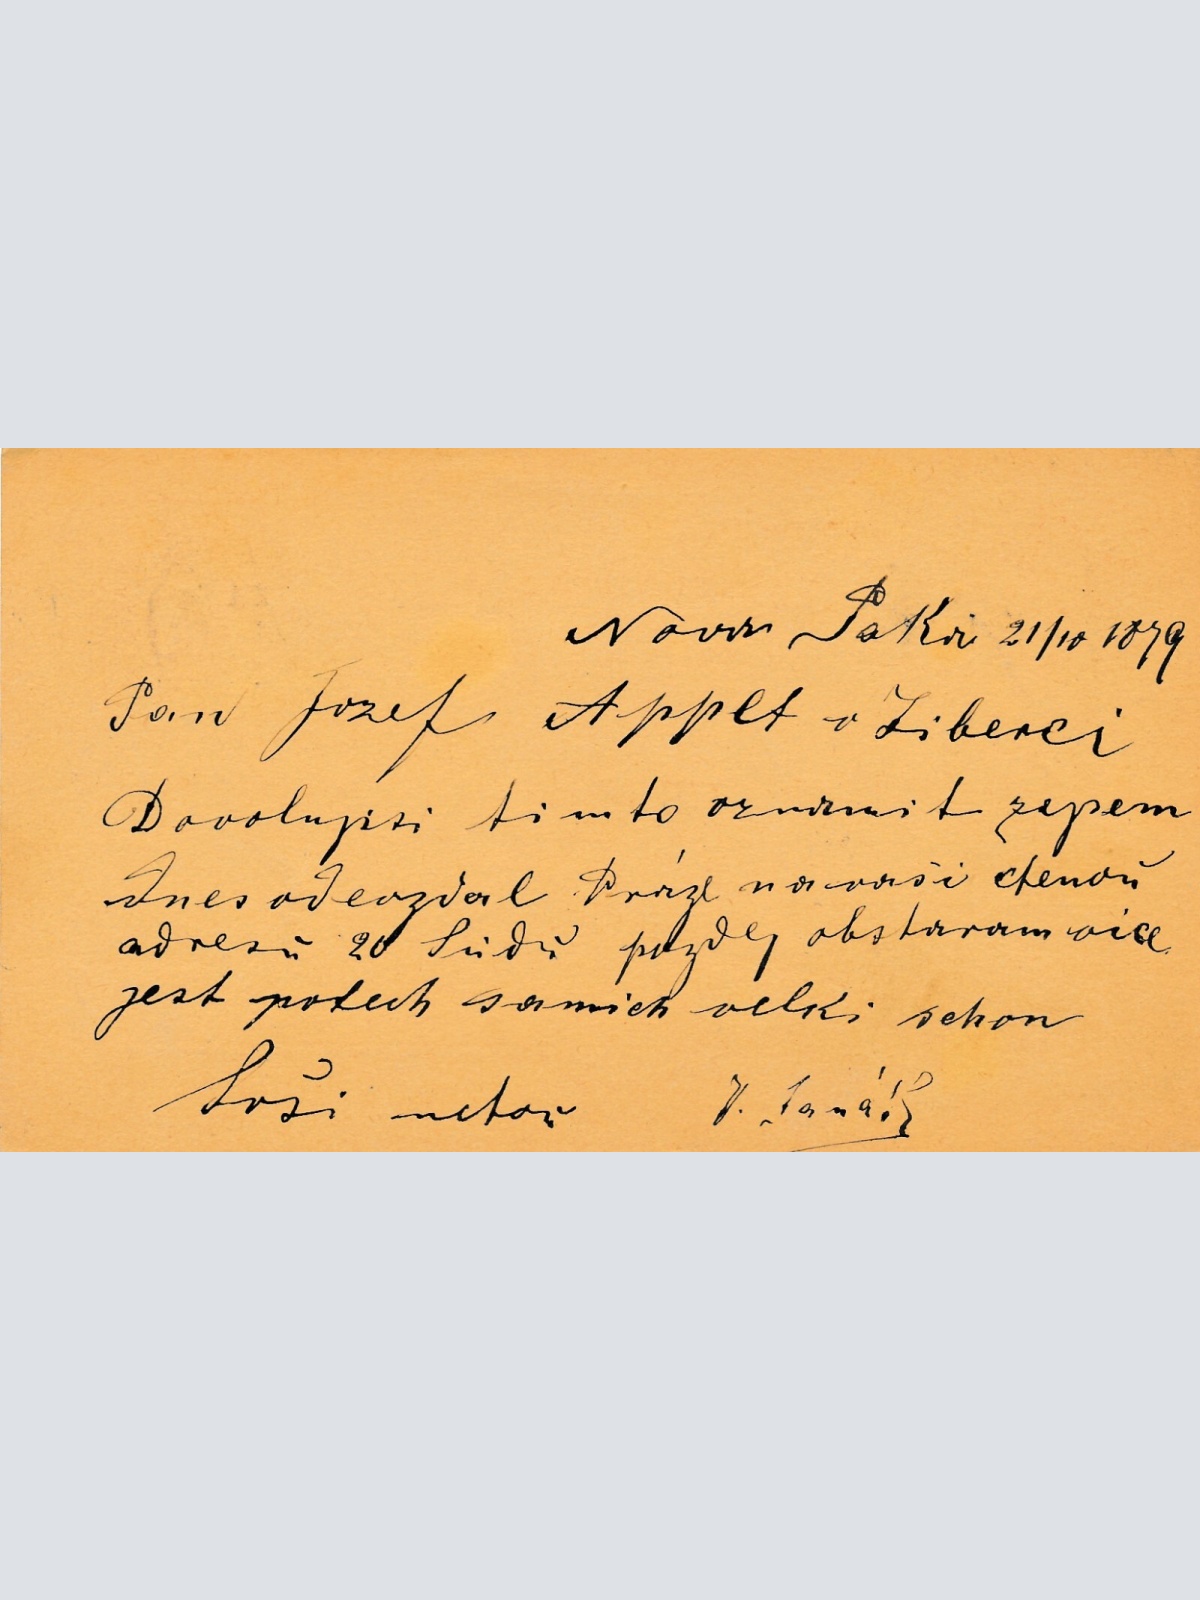 Nova Paka 21/10 1879
Pan Jozef Applt v Liberci
Dovolujisi timto oznamit zejsem
dnes odevzdal Dráze navaši ctenoú
adresu 20 Sudú pozdej obstaram vice
jest potech samich velki schon